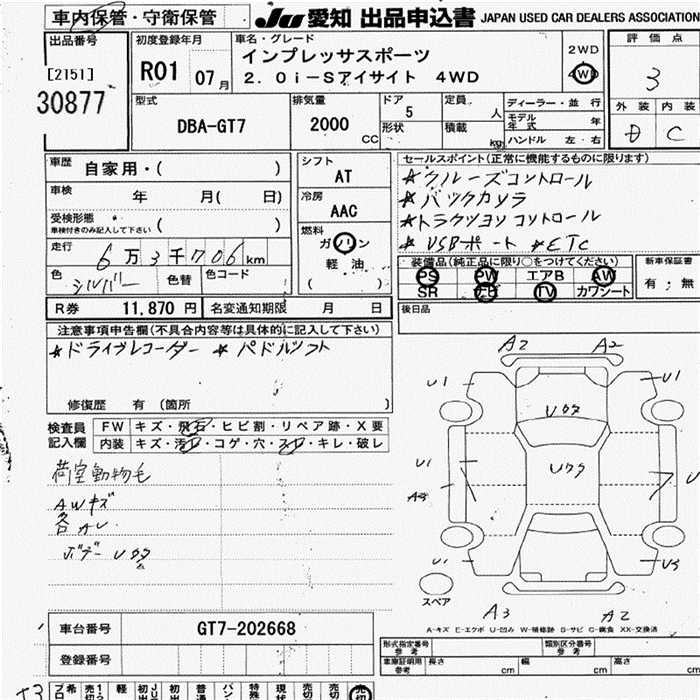 車内保管・守衛保管 JU 愛知 出品申込書 JAPAN USED CAR DEALERS ASSOCIATION
出品番号 [2151] 30877
初度登録年月 R01 07月
車名・グレード インプレッサスポーツ
2.0i-Sアイサイト 4WD
2WD 4WD
評価点 3
外装 内装 C
型式 DBA-GT7
排気量 2000 CC
ドア 5 形状
定員 人 積載 kg
ディーラー・並行
モデル年式 年
ハンドル 左・右
車歴 自家用・( )
車検 年 月( 日)
受検形態 車検付きのみ記入して下さい ( )
走行 6万3千706km
色 シルバー 色替 色コード
シフト AT
冷房 AAC
燃料 ガソリン 軽油 ( )
R券 11,870 円 名変通知期限 月 日
セールスポイント(正常に機能するものに限ります)
★クルーズコントロール
★バックカメラ
★トラクションコントロール
★USBポート ★ETC
装備品(純正品に限り○をつけてください)
PS PW エアB AW
SR ナビ TV カワシート
新車保証書 有・無
後日品
注意事項申告欄(不具合内容等は具体的に記入して下さい)
★ドライブレコーダー ★パドルシフト
修復歴 有 (箇所 )
検査員記入欄
FW キズ・飛石・ヒビ割・リペア跡・X要
内装 キズ・汚レ・コゲ・穴・スレ・キレ・破レ
荷室動物毛
AWキズ
各カレ
ボデー Uクタ
A2 A2
U1 U1
Uクタ
U1 Uクタ U
A3
U1 U3
スペア
A3 A2
A-キズ E-エクボ U-凹み W-補修跡 S-サビ C-腐食 XX-交換済
車台番号 GT7-202668
登録番号
形式指定番号 参考 類別区分番号 参考
車庫証明用 参考 長さ cm 幅 cm 高さ cm